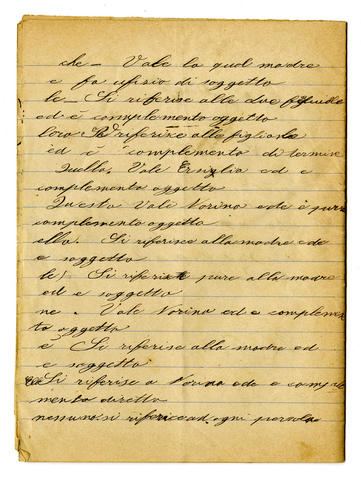 che - Vale la qual madre
e fa ufizio di soggetto
le - Si riferisce alle due
ed è complemento oggetto
loro Si riferisce alle figliole
ed è complemento di termine
Quella, Vale Ersilia ed e
complemento oggetto
Questa Vale Norina ed è pure
complemento oggetto
ella. Si riferisce alla madre ede
e soggetto
le) Si riferisce pure alla madre
ed e soggetto
ne. Vale Norina ed e complemen
to oggetto
è Si riferisce alla madre ed
e soggetto
Si riferisce a Norina ed e comple
mento diretto
nessuno si riferisce ad ogni persona